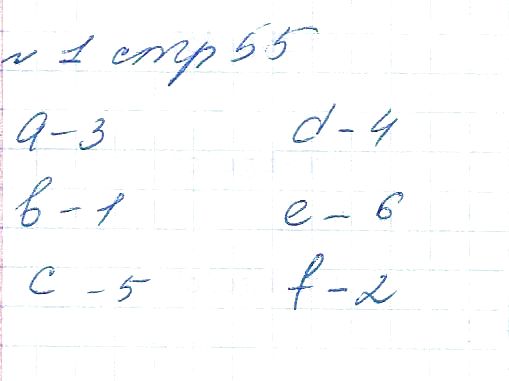 № 1 стр 55
a - 3 d - 4
b - 1 e - 6
c - 5 f - 2